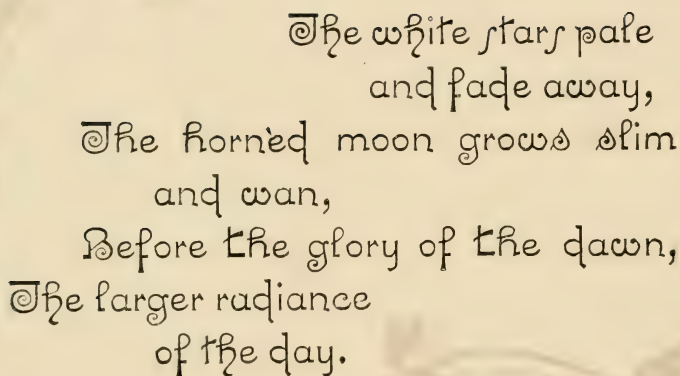 The white stars pale
and fade away,
The hornèd moon grows slim
and wan,
Before the glory of the dawn,
The larger radiance
of the day.